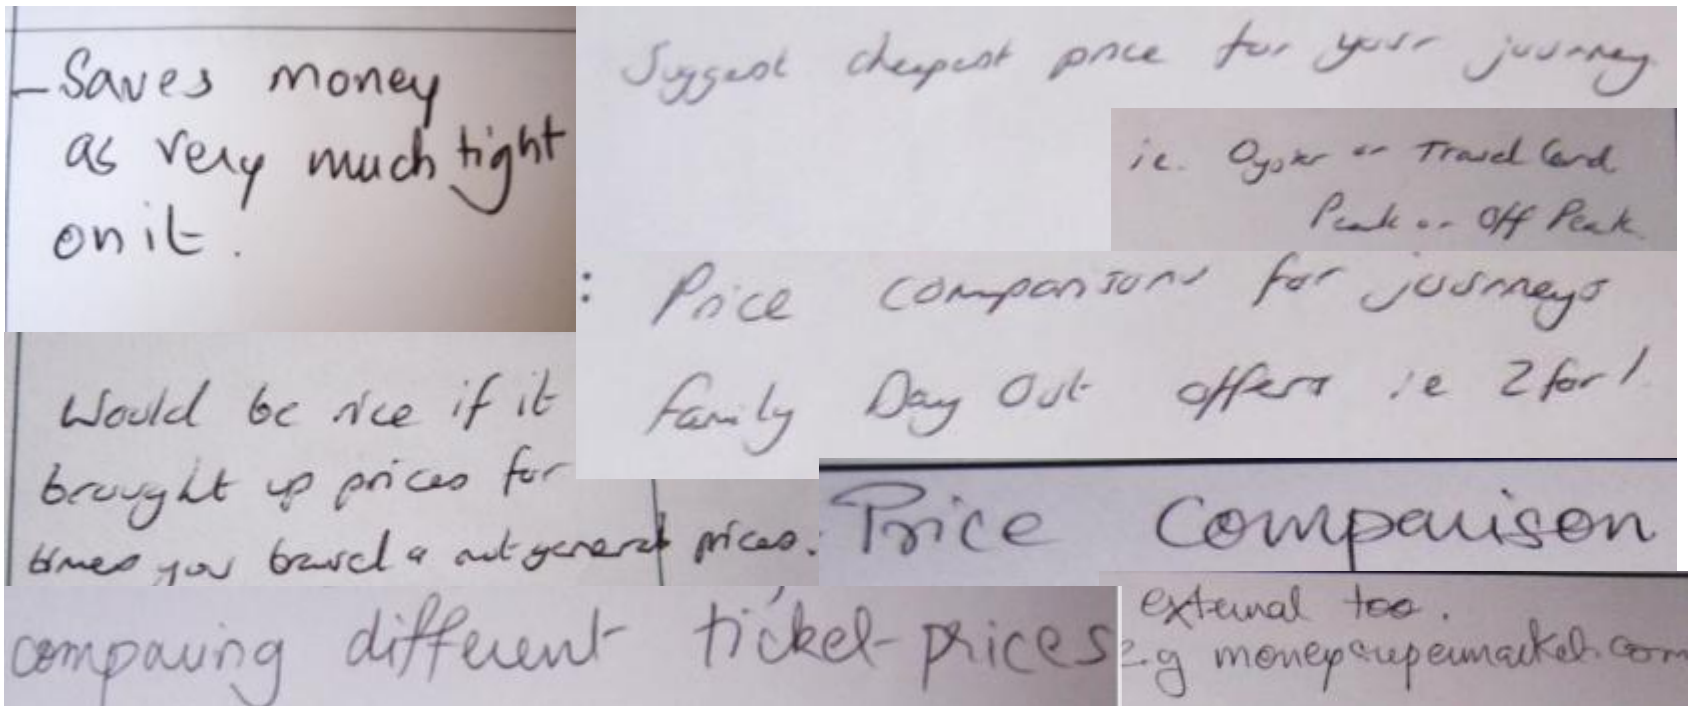 - Saves money
as very much tight
on it.
Suggest cheapest price for your journey
ie. Oyster or Travel Card
Peak or Off Peak
: Price comparisons for journeys
Family Day Out offers ie 2 for 1
Would be nice if it
brought up prices for
times you travel & not general prices.
Price Comparison
comparing different ticket prices
external too.
e.g moneysupermarket.com